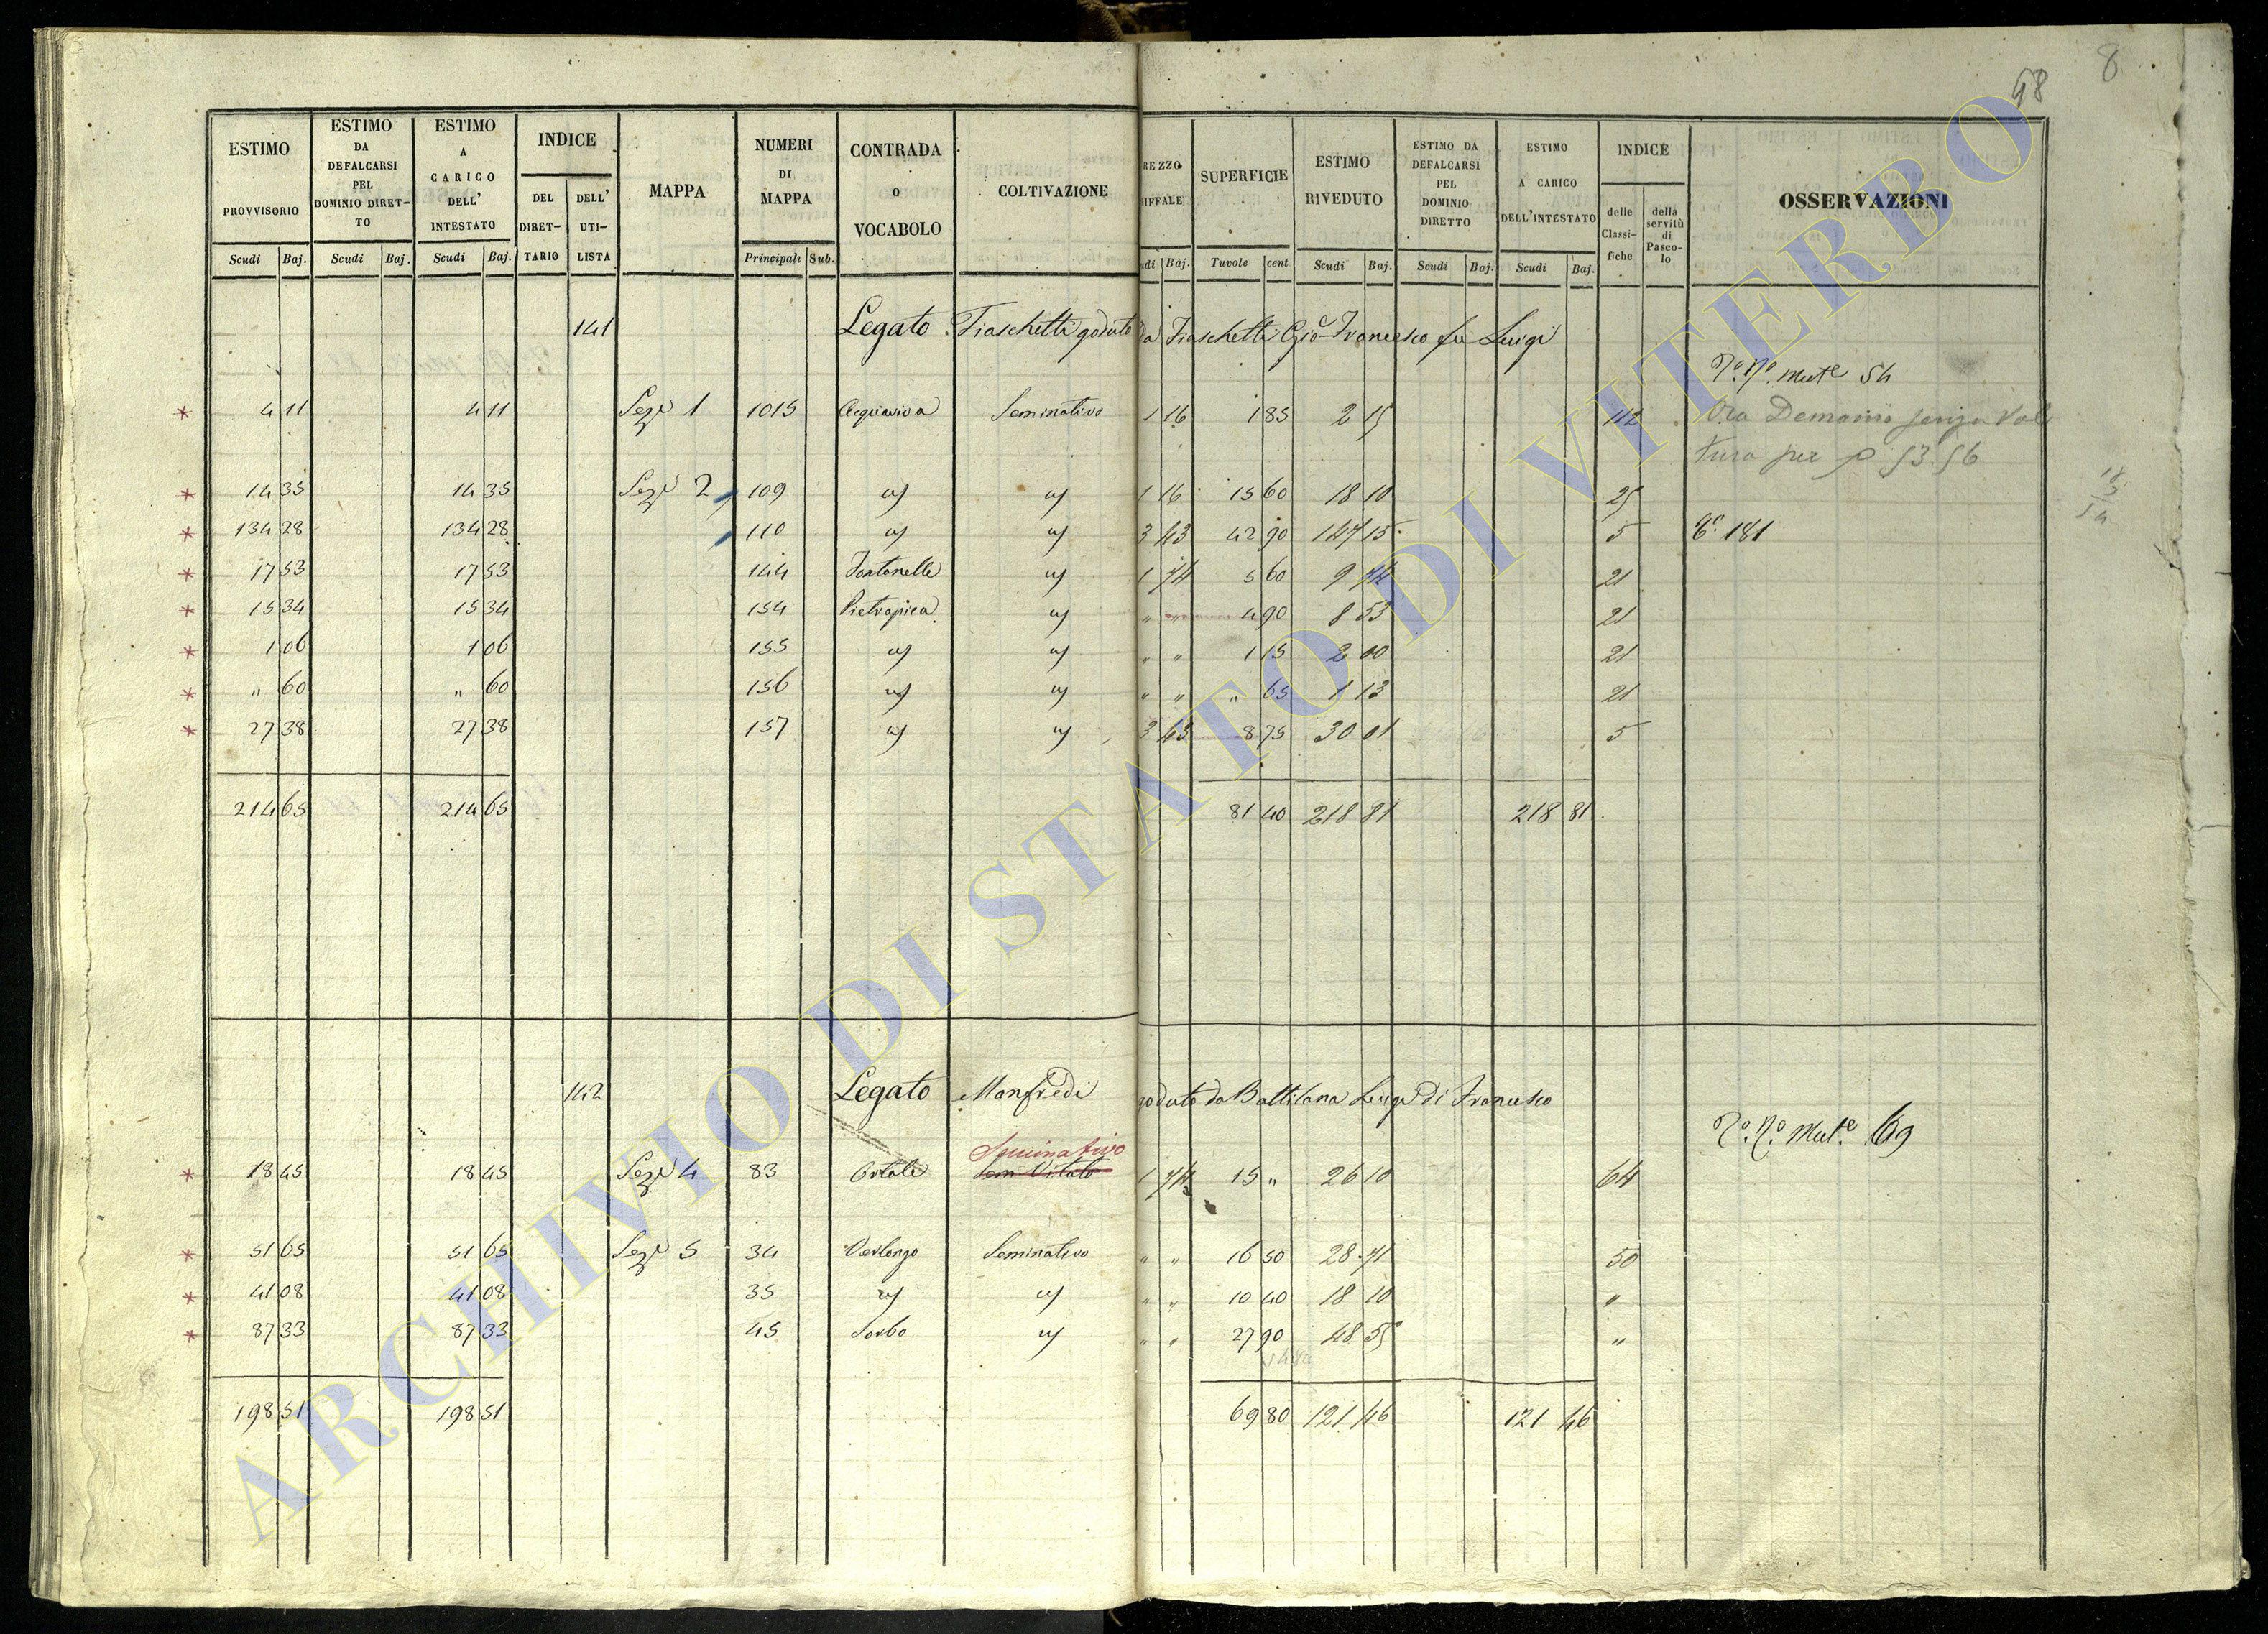 98 8
ESTIMO PROVVISORIO Scudi Baj. ESTIMO DA DEFALCARSI PEL DOMINIO DIRETTO Scudi Baj. ESTIMO A CARICO DELL' INTESTATO Scudi Baj. INDICE DEL DIRETTARIO DELL' UTILISTA MAPPA NUMERI DI MAPPA Principali Sub. CONTRADA O VOCABOLO COLTIVAZIONE REZZO RIFFALE udi Baj. SUPERFICIE Tavole cent ESTIMO RIVEDUTO Scudi Baj. ESTIMO DA DEFALCARSI PEL DOMINIO DIRETTO Scudi Baj. ESTIMO A CARICO DELL'INTESTATO Scudi Baj. INDICE delle Classifiche della servitù di Pascolo OSSERVAZIONI
141 Legato Fiaschetti goduto da Fiaschetti Gio Francesco fu Luigi
Mut.e 54
* 4 11 4 11 Sez.e 1 1015 Acquaviva Seminativo 1 16 1 85 2 15 112 Ora Demanio senza Vol
tura per 53.56
* 14 35 14 35 Sez.e 2 109 " " 1 16 15 60 18 10 25
* 134 28 134 28 110 " " 3 43 42 90 147 15 5 181
* 17 53 17 53 144 Fontanelle " 1 74 5 60 9 74 21
* 15 34 15 34 154 Pietropica " " " 4 90 8 53 21
* 1 06 1 06 155 " " " " 1 15 2 00 21
* " 60 " 60 156 " " " " " 65 1 13 21
* 27 38 27 38 157 " " 3 43 8 75 30 01 5
214 65 214 65 81 40 218 81 218 81
142 Legato Manfredi goduto da Battilana Luigi di Francesco
Mut.e 69
Seminativo
* 18 45 18 45 Sez.e 4 83 Ortale Sem Vitato 1 74 15 " 26 10 64
* 51 65 51 65 Sez.e 5 34 Verlongo Seminativo " " 16 50 28 71 50
* 41 08 41 08 35 " " " " 10 40 18 10 "
* 87 33 87 33 45 Sorbo " " " 27 90 48 55 "
198 51 198 51 69 80 121 46 121 46
ARCHIVIO DI STATO DI VITERBO